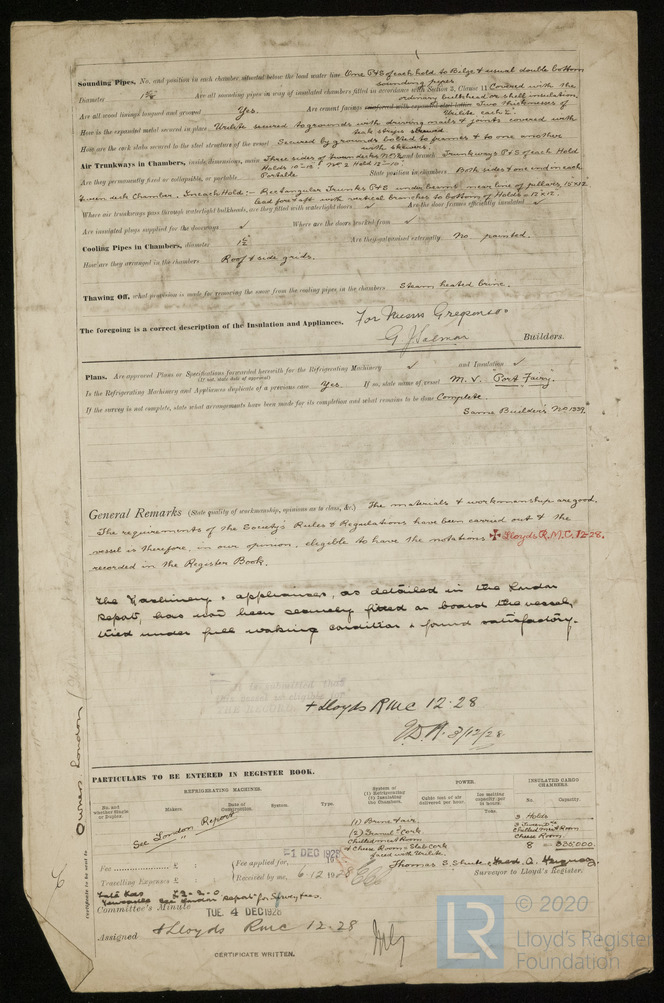 Sounding Pipes, No. and position in each chamber situated below the load water line One P&S of each hold to Bilge & usual double bottom
sounding pipes.
Diameter 1½" Are all sounding pipes in way of insulated chambers fitted in accordance with Section 3, Clause 11 Covered with the
ordinary bulkhead or shell insulation.
Are all wood linings tongued and grooved Yes. Are cement facings Two thicknesses of
Urilite each
How is the expanded metal secured in place Urilite secured to grounds with driving nails & joints covered with
teak strips
How are the cork slabs secured to the steel structure of the vessel Secured by grounds bolted to frames & to one another
with skewers.
Air Trunkways in Chambers, inside dimensions, main Three sides of tween decks and branch Trunkways P&S of each Hold
Are they permanently fixed or collapsible, or portable Portable State position in chambers Both sides & one end in each
Tween deck Chamber. In each Hold:- Rectangular Trunks P&S underneath near line of pillars 15"x12"
lead fore & aft with vertical branches to bottom of Holds 12"x12".
Where air trunkways pass through watertight bulkheads, are they fitted with watertight doors ✓ Are the door frames efficiently insulated ✓
Are insulated plugs supplied for the doorways ✓ Where are the doors worked from ✓
Cooling Pipes in Chambers, diameter 1½" Are they galvanised externally No painted.
How are they arranged in the chambers Roof & side grids.
Thawing Off, what provision is made for removing the snow from the cooling pipes in the chambers Steam heated brine.
The foregoing is a correct description of the Insulation and Appliances, For Messrs Gregsons
G J Salmon Builders.
Plans. Are approved Plans or Specifications forwarded herewith for the Refrigerating Machinery ✓ and Insulation ✓
(If not, state date of approval)
Is the Refrigerating Machinery and Appliances duplicate of a previous case Yes. If so, state name of vessel M.V. "Port Fairy".
If the survey is not complete, state what arrangements have been made for its completion and what remains to be done Complete.
Same Builders No 1339
General Remarks (State quality of workmanship, opinions as to class, &c.) The materials & workmanship are good.
The requirements of the Society's Rules & Regulations have been carried out & the
vessel is therefore, in our opinion, eligible to have the notations ✠ Lloyds R.M.C. 12-28.
recorded in the Register Book.
The Machinery & appliances, as detailed in the London
Report, has now been securely fitted on board the vessel,
tried under full working condition & found satisfactory.
It is submitted that
this vessel is eligible for
THE RECORD.
+ Lloyds RMC 12.28
3/12/28
PARTICULARS TO BE ENTERED IN REGISTER BOOK.
REFRIGERATING MACHINES. POWER. INSULATED CARGO CHAMBERS.
No. and whether Single or Duplex. Makers. Date of Construction. System. Type. System of (1) Refrigerating (2) Insulating the Chambers. Cubic feet of air delivered per hour. Ice melting capacity per 24 hours. No. Capacity.
Tons.
See London Report
(1) Brine & air
(2) Granul'd Cork
Chilled meat Room
& Cheese Room - Slab Cork
faced with Urilite.
3 Holds
3 Tween Dks
Chilled meat Room
Cheese Room.
8
Fee £ : : Fee applied for, -1 DEC 1928
Travelling Expenses £ : : Received by me, 6 12 1928
Thomas S. Shute
Surveyor to Lloyd's Register.
Newcastle See London Report for Survey Fees.
Committee's Minute TUE. 4 DEC 1928
Assigned + Lloyds RMC 12.28
CERTIFICATE WRITTEN.
Owners. London
Certificate to be sent to
© 2020
LR
Lloyd's Register
Foundation